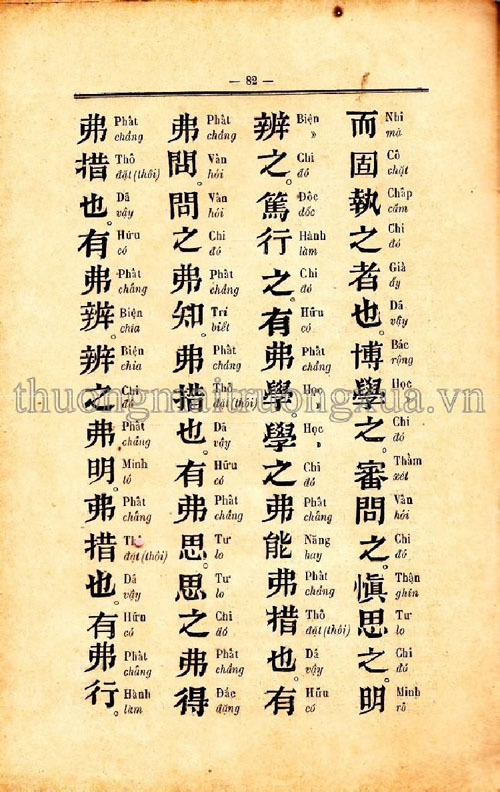 — 82 —
而 Nhi mà 固 Cô chặt 執 Chấp cầm 之 Chi đó 者 Giả ấy 也。 Dã vậy 博 Bác rộng 學 Học » 之。 Chi đó 審 Thẩm xét 問 Vấn hỏi 之。 Chi đó 慎 Thận ghín 思 Tư lo 之。 Chi đó 明 Minh rõ
辨 Biện » 之。 Chi đó 篤 Đốc dốc 行 Hành làm 之。 Chi đó 有 Hữu có 弗 Phất chẳng 學。 Học » 學 Học » 之 Chi đó 弗 Phất chẳng 能 Năng hay 弗 Phất chẳng 措 Thố đặt (thôi) 也。 Dã vậy 有 Hữu có
弗 Phất chẳng 問。 Vấn hỏi 問 Vấn hỏi 之 Chi đó 弗 Phất chẳng 知。 Trí biết 弗 Phất chẳng 措 Thố đặt (thôi) 也。 Dã vậy 有 Hữu có 弗 Phất chẳng 思。 Tư lo 思 Tư lo 之 Chi đó 弗 Phất chẳng 得 Đắc đặng
弗 Phất chẳng 措 Thố đặt (thôi) 也。 Dã vậy 有 Hữu có 弗 Phất chẳng 辨。 Biện chia 辨 Biện chia 之 Chi đó 弗 Phất chẳng 明。 Minh tỏ 弗 Phất chẳng 措 Thố đặt (thôi) 也。 Dã vậy 有 Hữu có 弗 Phất chẳng 行。 Hành làm
thuongmaitruongxua.vn